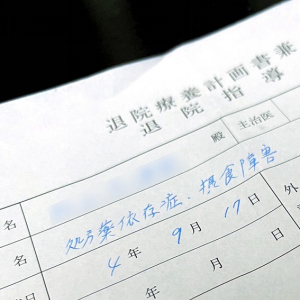 退院療養計画書兼
退院指導
殿 主治医
名
名 処方薬依存症、摂食障害
4年9月17日 外
年 月 日